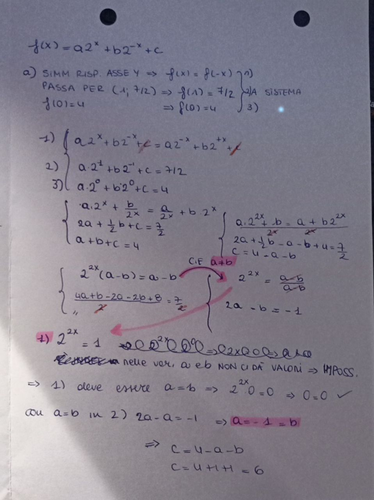 f(x) = a2ˣ + b2⁻ˣ + c
a) SIMM RISP. ASSE Y ⟺ f(x) = f(-x) 1)
PASSA PER (1, 7/2) ⟺ f(1) = 7/2 2) A SISTEMA
f(0) = 4 ⟺ f(0) = 4 3)
1) a·2ˣ + b2⁻ˣ + c = a2⁻ˣ + b2⁺ˣ + c
2) a·2¹ + b2⁻¹ + c = 7/2
3) a·2⁰ + b2⁰ + c = 4
a·2ˣ + b/2ˣ = a/2ˣ + b·2ˣ
2a + 1/2 b + c = 7/2
a + b + c = 4
a·2²ˣ + b / 2ˣ = a + b2²ˣ / 2ˣ
2a + 1/2 b - a - b + 4 = 7/2
c = 4 - a - b
2²ˣ(a-b) = a-b
4a + b - 2a - 2b + 8 = 7 / 2
"
C.E a≠b
2²ˣ = a-b / a-b
2a - b = -1
1) 2²ˣ = 1
nelle var. a e b NON CI DÀ VALORI ⇒ IMPOSS.
⇒ 1) deve essere a = b ⇒ 2²ˣ·0 = 0 ⇒ 0 = 0 ✓
con a = b in 2) 2a - a = -1 ⇒ a = -1 = b
⇒ c = 4 - a - b
c = 4 + 1 + 1 = 6